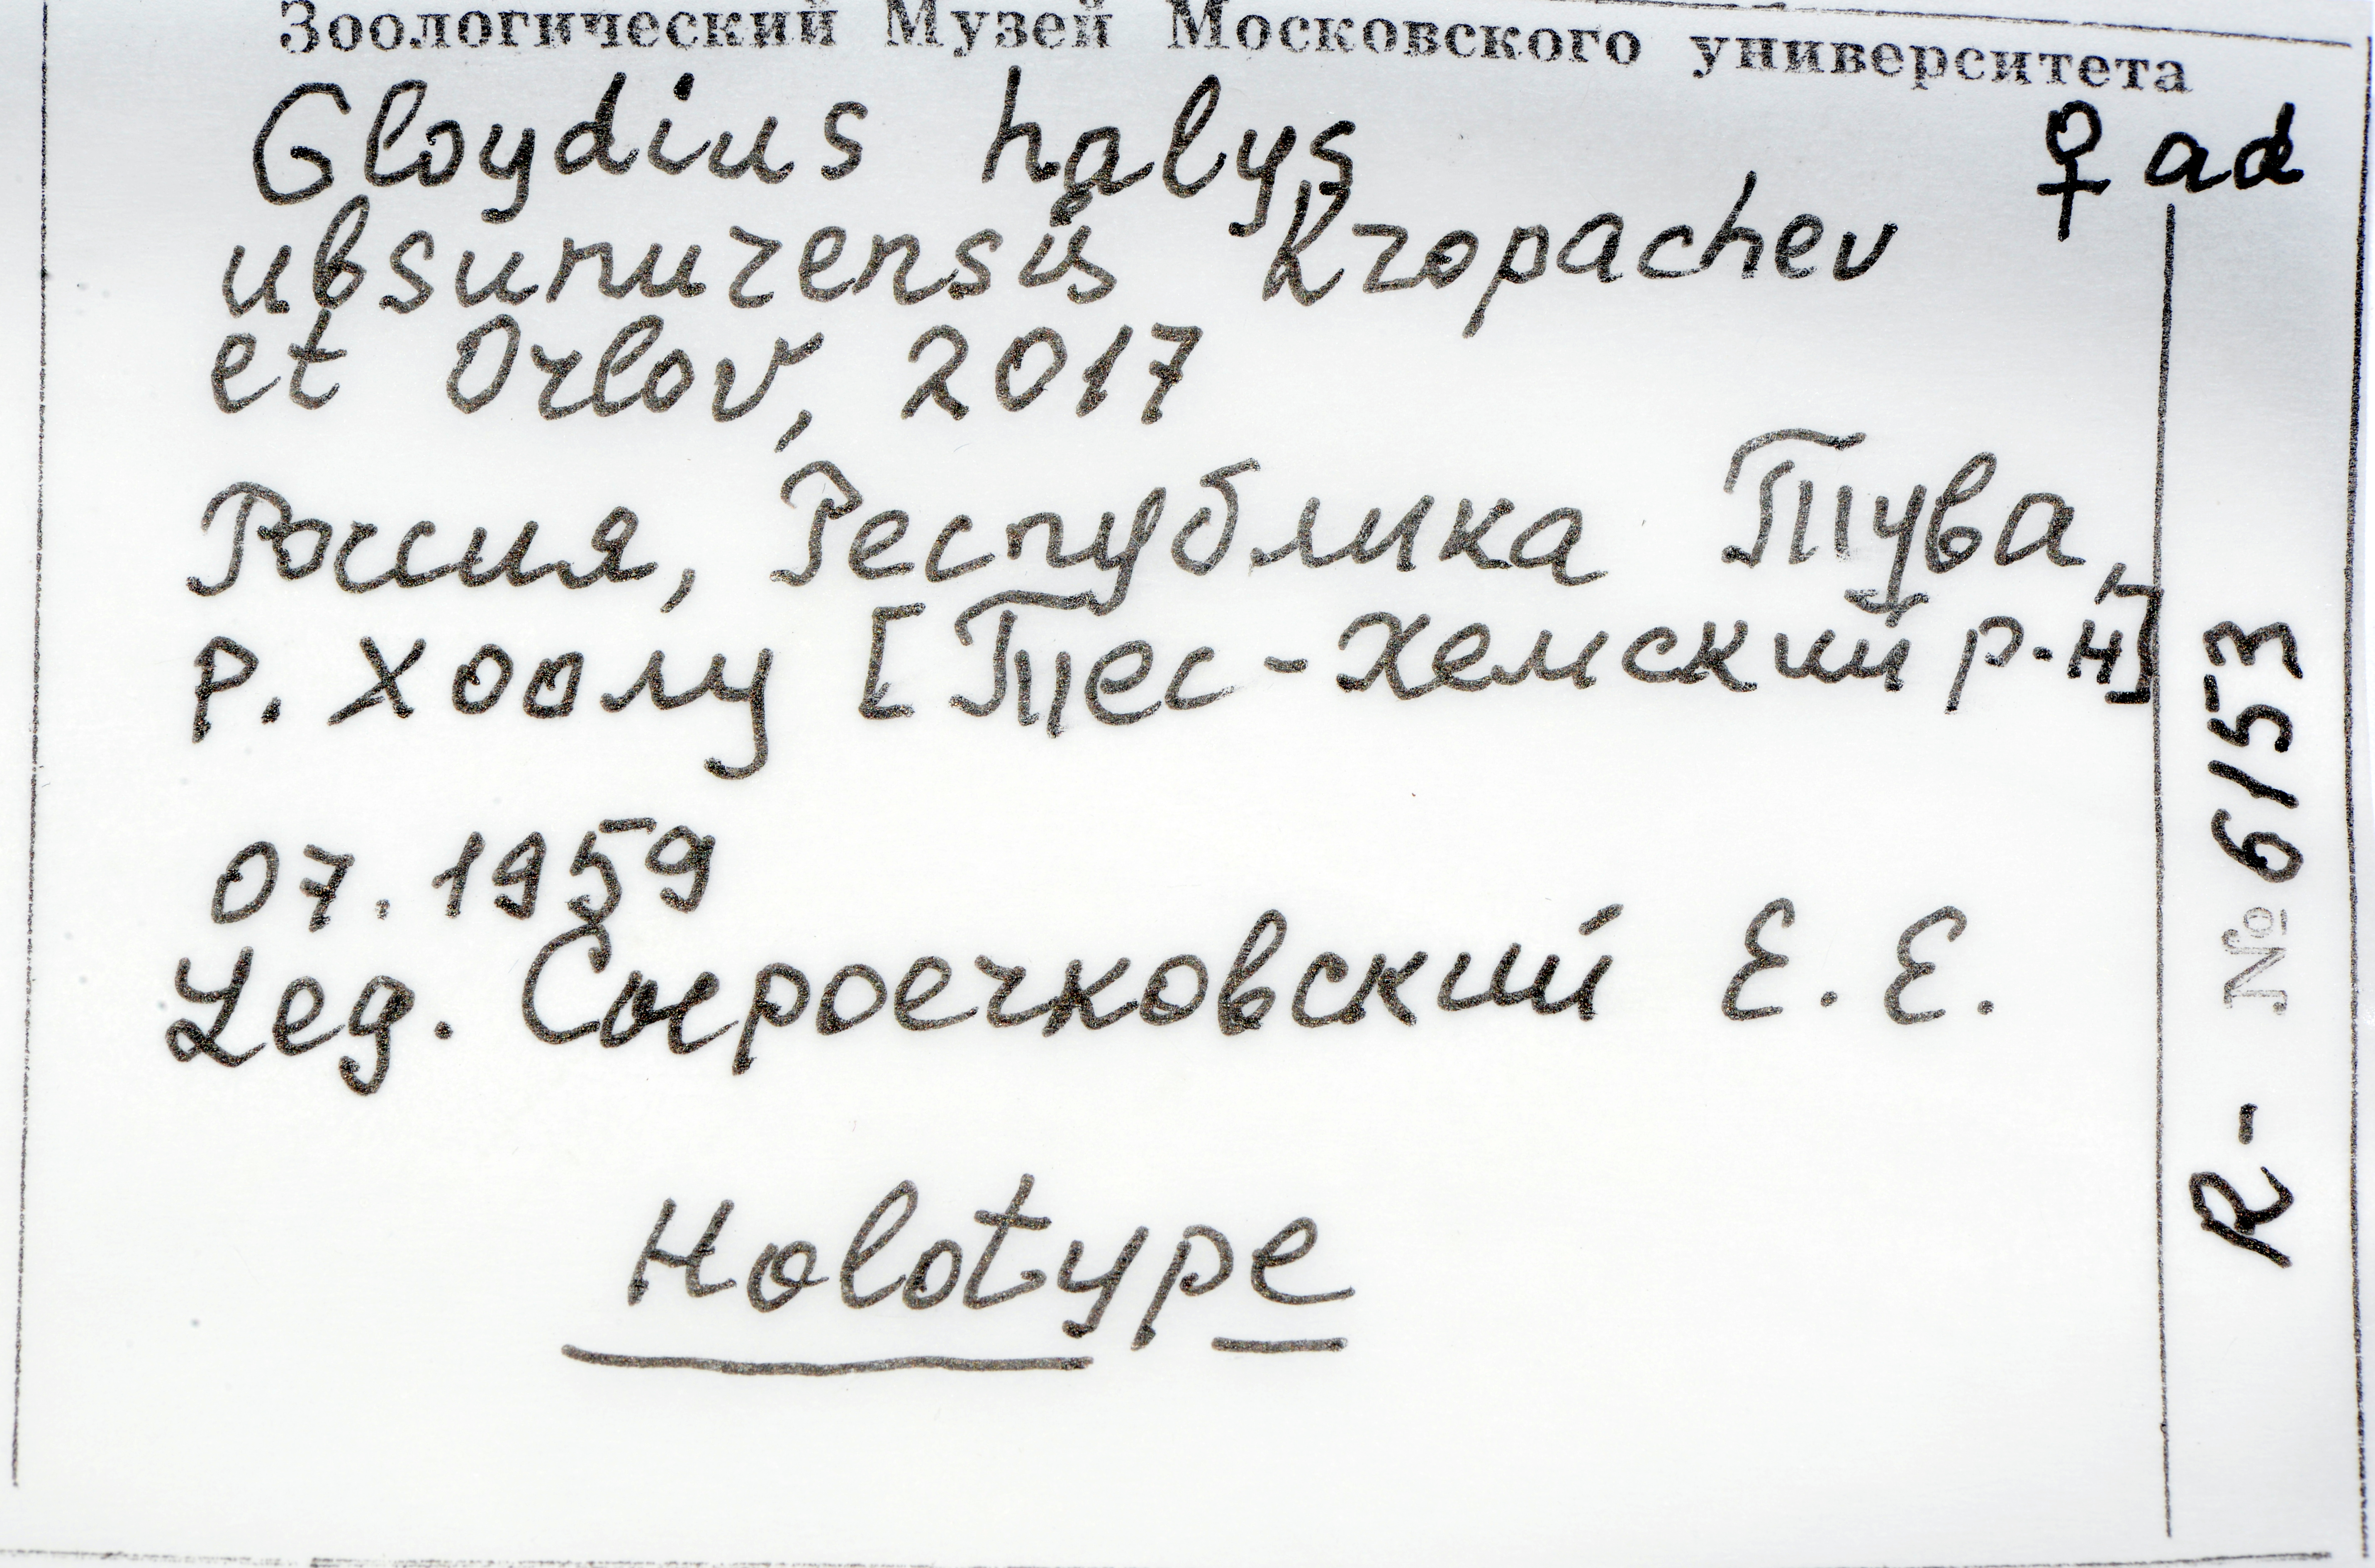 Зоологический Музей Московского университета
Gloydius halys ♀ ad
ubsunurensis Kropachev
et Orlov, 2017
Россия, Республика Тува,
р. Хоолу [Тес-Хемский р-н]
07.1959
Leg. Сыроечковский Е.Е.
Holotype
R- № 6153